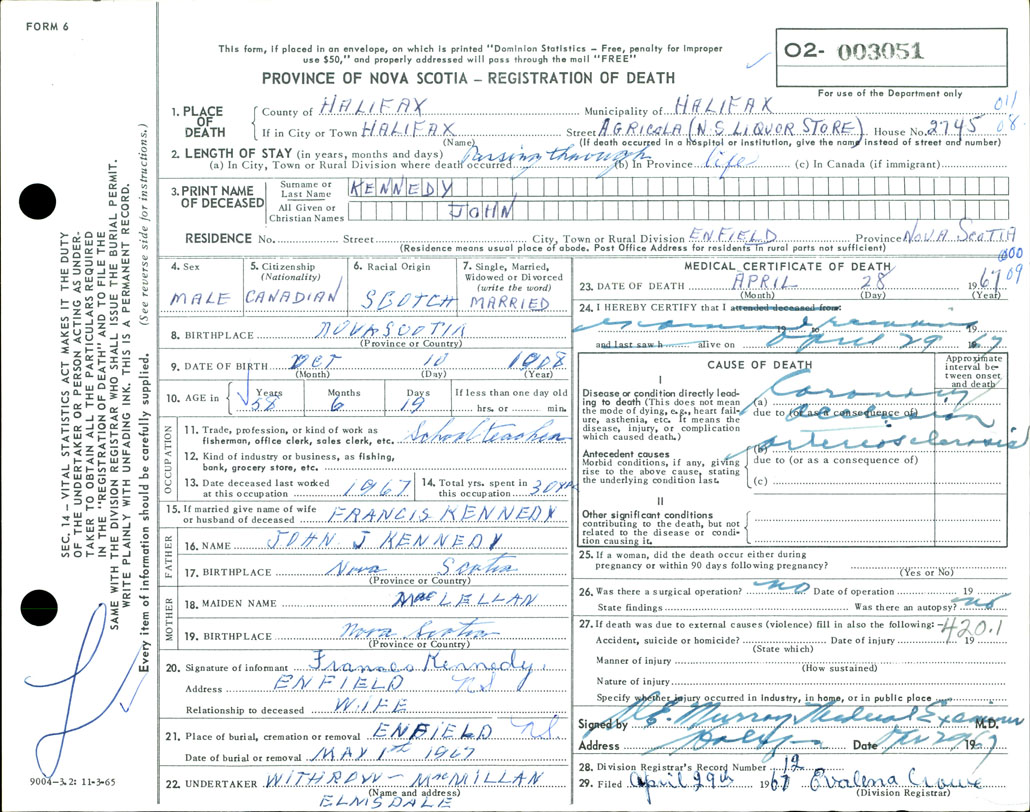 FORM 6
This form, if placed in an envelope, on which is printed "Dominion Statistics – Free, penalty for improper
use $50," and properly addressed will pass through the mail "FREE"
O2- 003051
For use of the Department only
PROVINCE OF NOVA SCOTIA – REGISTRATION OF DEATH
1. PLACE OF DEATH
County of HALIFAX Municipality of HALIFAX 011
If in City or Town HALIFAX Street AGRICOLA (N.S. LIQUOR STORE) House No. 2745 08
(Name) (If death occurred in a hospital or institution, give the name instead of street and number)
2. LENGTH OF STAY (in years, months and days)
(a) In City, Town or Rural Division where death occurred Passing through (b) In Province life (c) In Canada (if immigrant)
3. PRINT NAME OF DECEASED
Surname or Last Name KENNEDY
All Given or Christian Names JOHN
RESIDENCE No. Street City, Town or Rural Division ENFIELD Province NOVA SCOTIA
(Residence means usual place of abode. Post Office Address for residents in rural parts not sufficient)
000
09
4. Sex MALE
5. Citizenship (Nationality) CANADIAN
6. Racial Origin SCOTCH
7. Single, Married, Widowed or Divorced (write the word) MARRIED
8. BIRTHPLACE NOVA SCOTIA
(Province or Country)
9. DATE OF BIRTH OCT 10 1908
(Month) (Day) (Year)
10. AGE in Years 58 Months 6 Days 19 If less than one day old hrs. or min.
OCCUPATION
11. Trade, profession, or kind of work as fisherman, office clerk, sales clerk, etc. School teacher
12. Kind of industry or business, as fishing, bank, grocery store, etc.
13. Date deceased last worked at this occupation 1967
14. Total yrs. spent in this occupation 30 yrs
15. If married give name of wife or husband of deceased FRANCIS KENNEDY
FATHER
16. NAME JOHN J KENNEDY
17. BIRTHPLACE Nova Scotia
(Province or Country)
MOTHER
18. MAIDEN NAME MacLELLAN
19. BIRTHPLACE Nova Scotia
(Province or Country)
20. Signature of informant Frances Kennedy
Address ENFIELD NS
Relationship to deceased WIFE
21. Place of burial, cremation or removal ENFIELD NS
Date of burial or removal MAY 1st 1967
22. UNDERTAKER WITHROW – MacMILLAN
(Name and address)
ELMSDALE
MEDICAL CERTIFICATE OF DEATH
23. DATE OF DEATH APRIL 28 1967
(Month) (Day) (Year)
24. I HEREBY CERTIFY that I attended deceased from
19 to
and last saw h alive on April 29 1967
CAUSE OF DEATH
Approximate interval between onset and death
I
Disease or condition directly leading to death (This does not mean the mode of dying, e.g., heart failure, asthenia, etc. It means the disease, injury, or complication which caused death.)
(a) Coronary
due to (or as a consequence of) occlusion
Antecedent causes
Morbid conditions, if any, giving rise to the above cause, stating the underlying condition last.
(b) arteriosclerosis
due to (or as a consequence of)
(c)
II
Other significant conditions
contributing to the death, but not related to the disease or condition causing it.
25. If a woman, did the death occur either during
pregnancy or within 90 days following pregnancy?
(Yes or No)
26. Was there a surgical operation? no Date of operation 19
State findings Was there an autopsy? no
27. If death was due to external causes (violence) fill in also the following: 420.1
Accident, suicide or homicide? Date of injury 19
(State which)
Manner of injury
(How sustained)
Nature of injury
Specify whether injury occurred in industry, in home, or in public place
Signed by E. Murray Medical Examiner M.D.
Address Halifax Date Apr 29 1967
28. Division Registrar's Record Number 12
29. Filed April 29th 1967 Evalena Crowe
(Division Registrar)
SEC. 14 – VITAL STATISTICS ACT MAKES IT THE DUTY
OF THE UNDERTAKER OR PERSON ACTING AS UNDER-
TAKER TO OBTAIN ALL THE PARTICULARS REQUIRED
IN THE "REGISTRATION OF DEATH" AND TO FILE THE
SAME WITH THE DIVISION REGISTRAR WHO SHALL ISSUE THE BURIAL PERMIT.
WRITE PLAINLY WITH UNFADING INK. THIS IS A PERMANENT RECORD.
Every item of information should be carefully supplied. (See reverse side for instructions.)
9004-3.2: 11-3-65